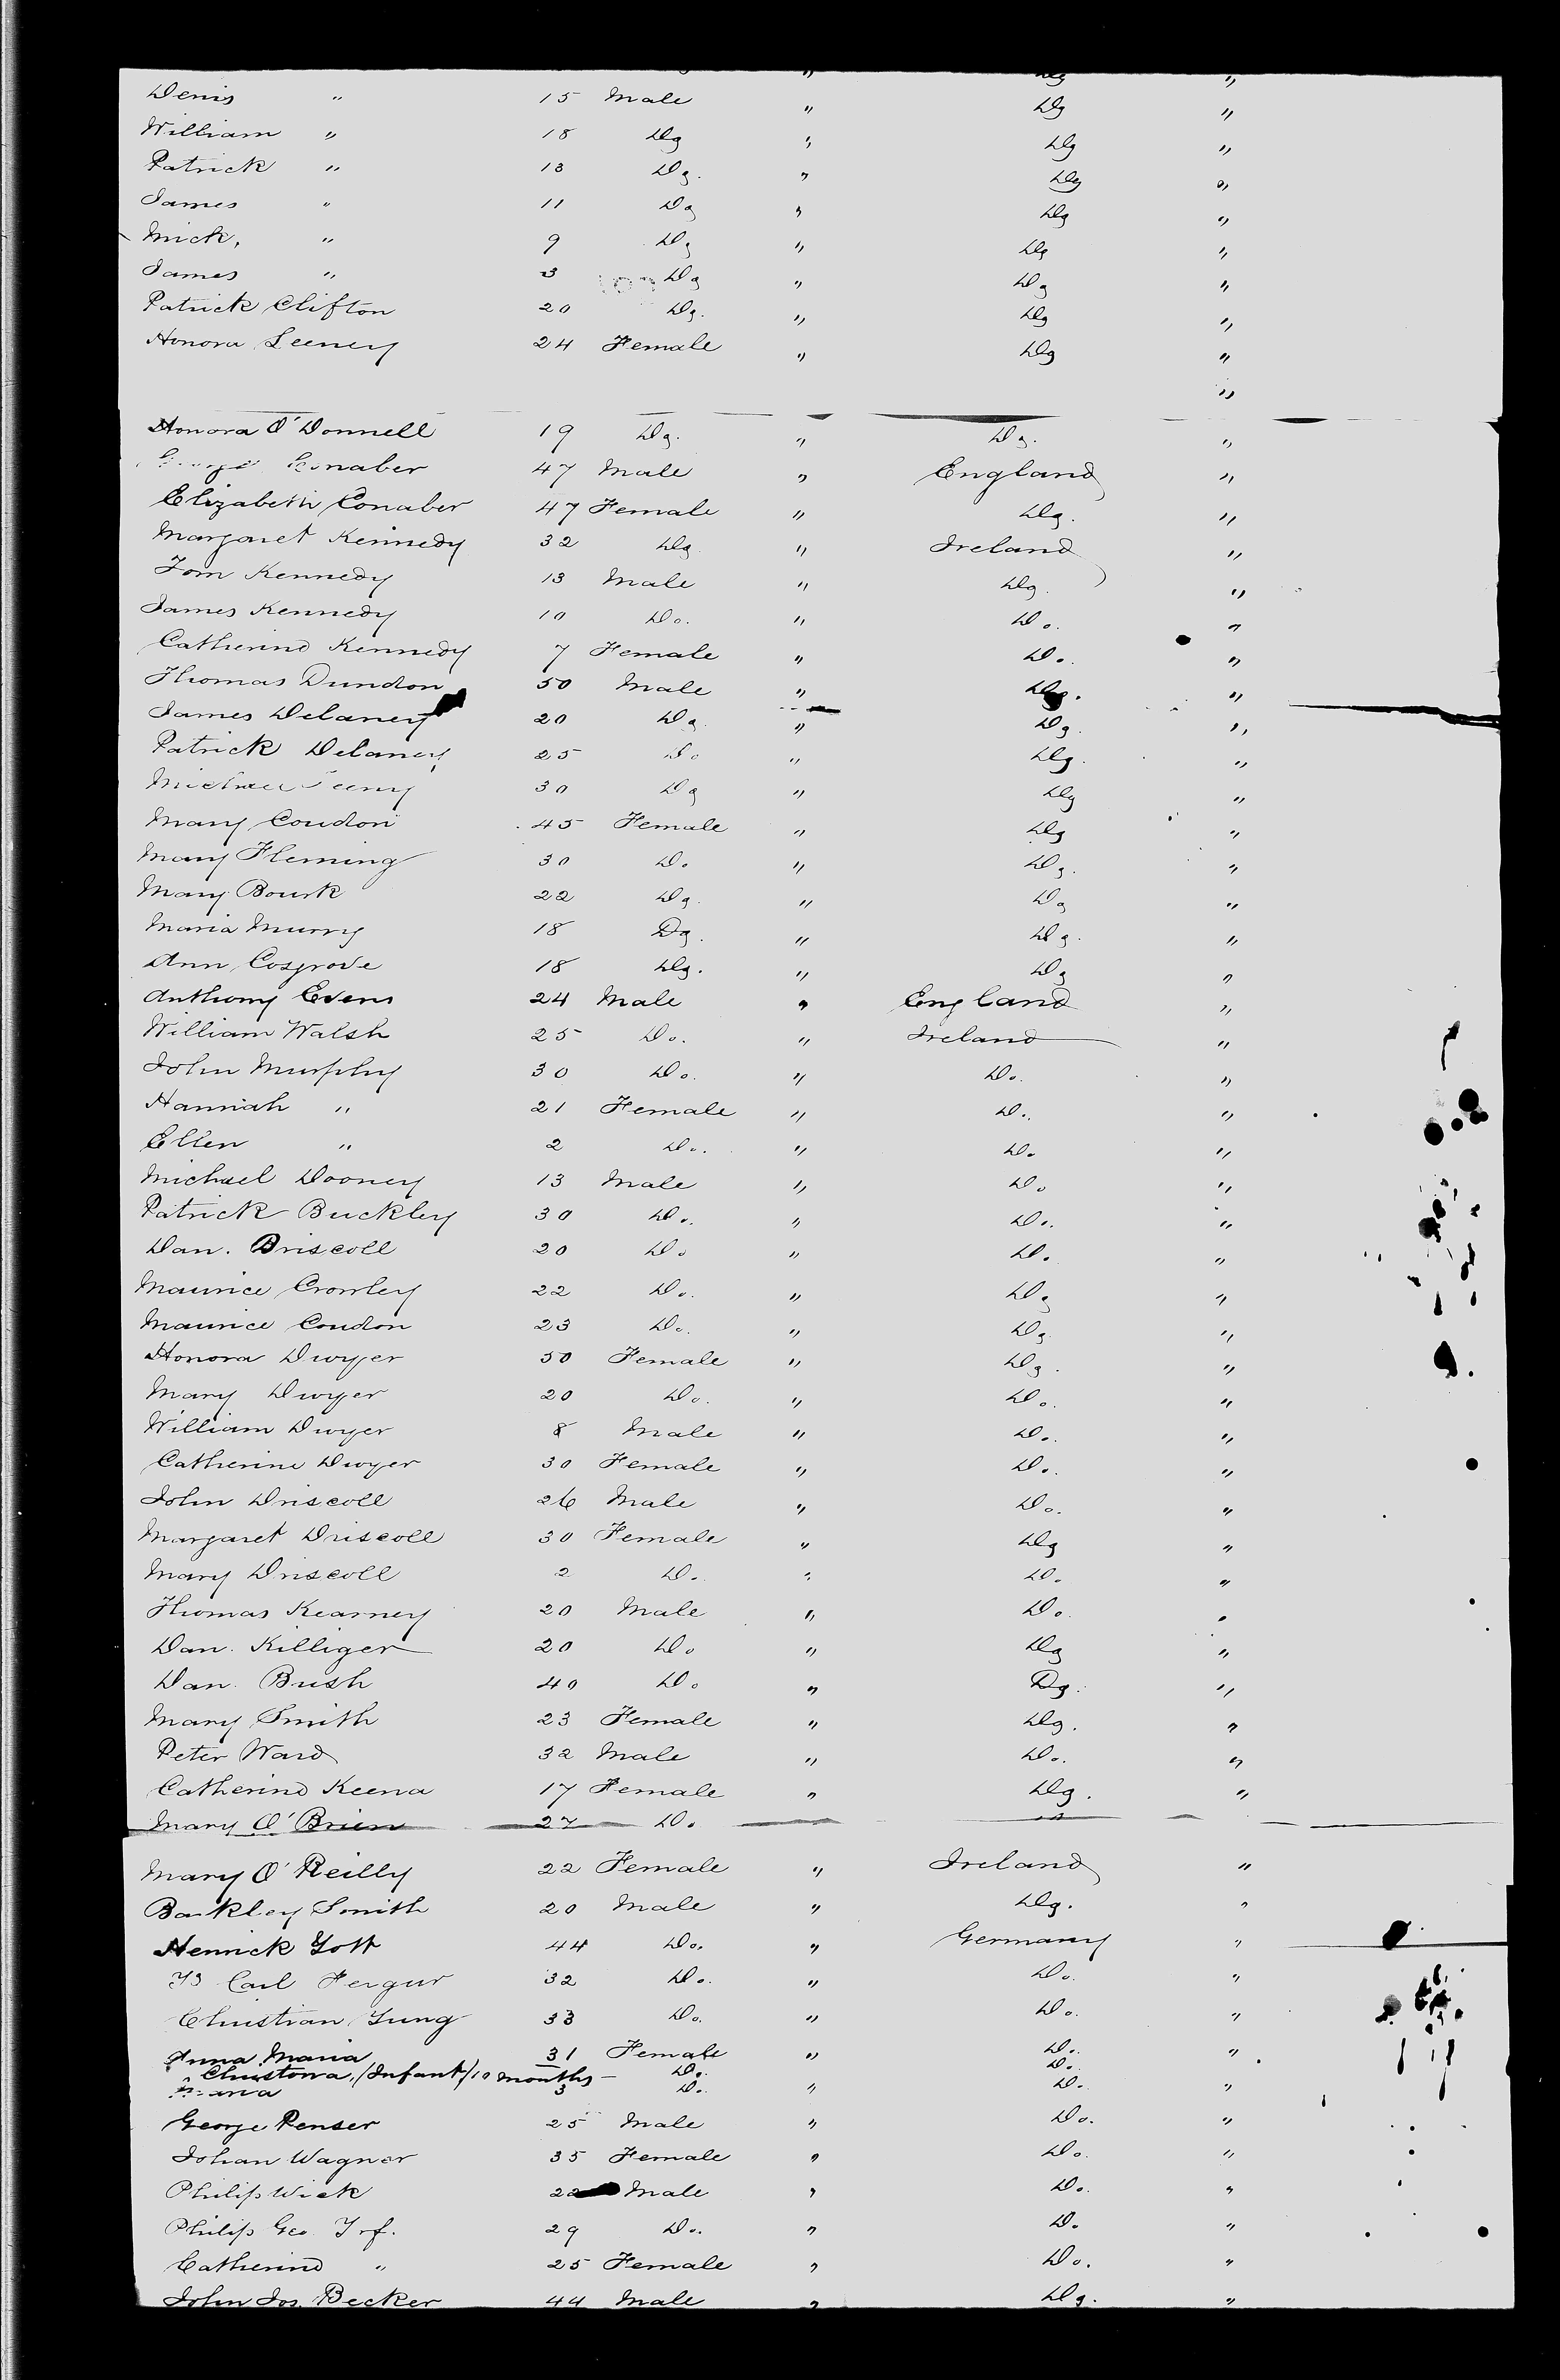 Denis " 15 Male " Do "
William " 18 Do " Do "
Patrick " 13 Do. " Do "
James " 11 Do " Do "
Mick, " 9 Do " Do "
James " 3 Do " Do "
Patrick Clifton 20 Do. " Do "
Honora Leeney 24 Female " Do "
"
Honora O'Donnell 19 Do. " Do. "
Conaber 47 Male " England "
Elizabeth Conaber 47 Female " Do. "
Margaret Kennedy 32 Do " Ireland "
Tom Kennedy 13 Male " Do. "
James Kennedy 10 Do. " Do. "
Catherine Kennedy 7 Female " Do. "
Thomas Dundon 50 Male " Do. "
James Delaney 20 Do. " Do. "
Patrick Delaney 25 Do " Do. "
Michael 30 Do " Do "
Mary Condon 45 Female " Do "
Mary Fleming 30 Do. " Do. "
Mary Bourk 22 Do. " Do "
Maria Murry 18 Do. " Do. "
Ann Cosgrove 18 Do. " Do "
Anthony Evens 24 Male " England "
William Walsh 25 Do. " Ireland "
John Murphy 30 Do. " Do. "
Hannah " 21 Female " Do. "
Ellen " 2 Do. " Do. "
Michael Dooney 13 Male " Do "
Patrick Buckley 30 Do. " Do. "
Dan. Driscoll 20 Do " Do. "
Maurice Crowley 22 Do. " Do "
Maurice Condon 23 Do. " Do. "
Honora Dwyer 50 Female " Do. "
Mary Dwyer 20 Do. " Do. "
William Dwyer 8 Male " Do. "
Catherine Dwyer 30 Female " Do. "
John Driscoll 26 Male " Do. "
Margaret Driscoll 30 Female " Do "
Mary Driscoll 2 Do. " Do. "
Thomas Kearney 20 Male " Do. "
Dan. Killiger 20 Do " Do "
Dan. Bush 40 Do " Do. "
Mary Smith 23 Female " Do. "
Peter Ward 32 Male " Do. "
Catherine Keena 17 Female " Do. "
Mary O'Brien 27 Do.
Mary O'Reilly 22 Female " Ireland "
Barkley Smith 20 Male " Do. "
Henrick Yott 44 Do. " Germany "
Carl Fergur 32 Do. " Do. "
Christian Jung 33 Do. " Do. "
Anna Maria 31 Female " Do. "
Christona, (Infant) 10 months Do. Do.
3 Do. " Do. "
George Penser 25 Male " Do. "
Johan Wagner 35 Female " Do. "
Philip Wick 22 Male " Do. "
Philip Geo. 29 Do. " Do. "
Catherine " 25 Female " Do. "
John Jos. Becker 44 Male " Do. "